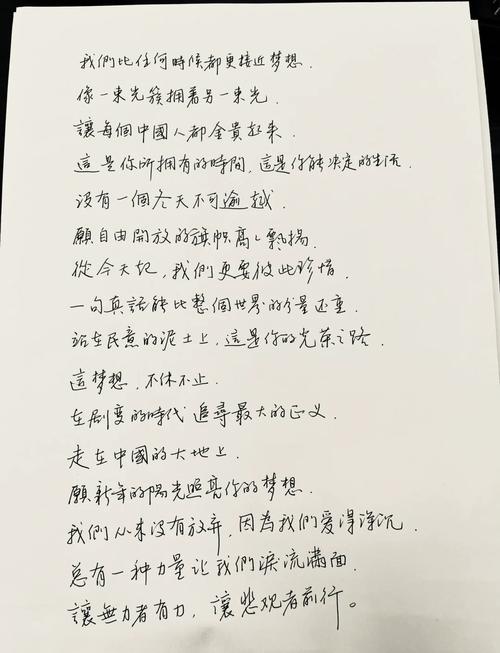 我們比任何時候都更接近梦想.
像一束光簇拥着另一束光.
讓每個中國人都金貴起来.
這是你所拥有的時間, 這是你能决定的生活.
没有一個冬天不可逾越.
願自由開放的旗帜高高飘揚.
從今天起, 我們更要彼此珍惜.
一句真話能比整個世界的分量还重.
站在民意的泥土上, 這是你的光荣之路.
這梦想, 不休不止.
在剧变的時代 追尋最大的正义.
走在中國的大地上.
願新年的陽光照亮你的梦想.
我們从来没有放弃, 因為我們爱得深沉.
总有一种力量让我們淚流滿面.
讓無力者有力, 讓悲观者前行。